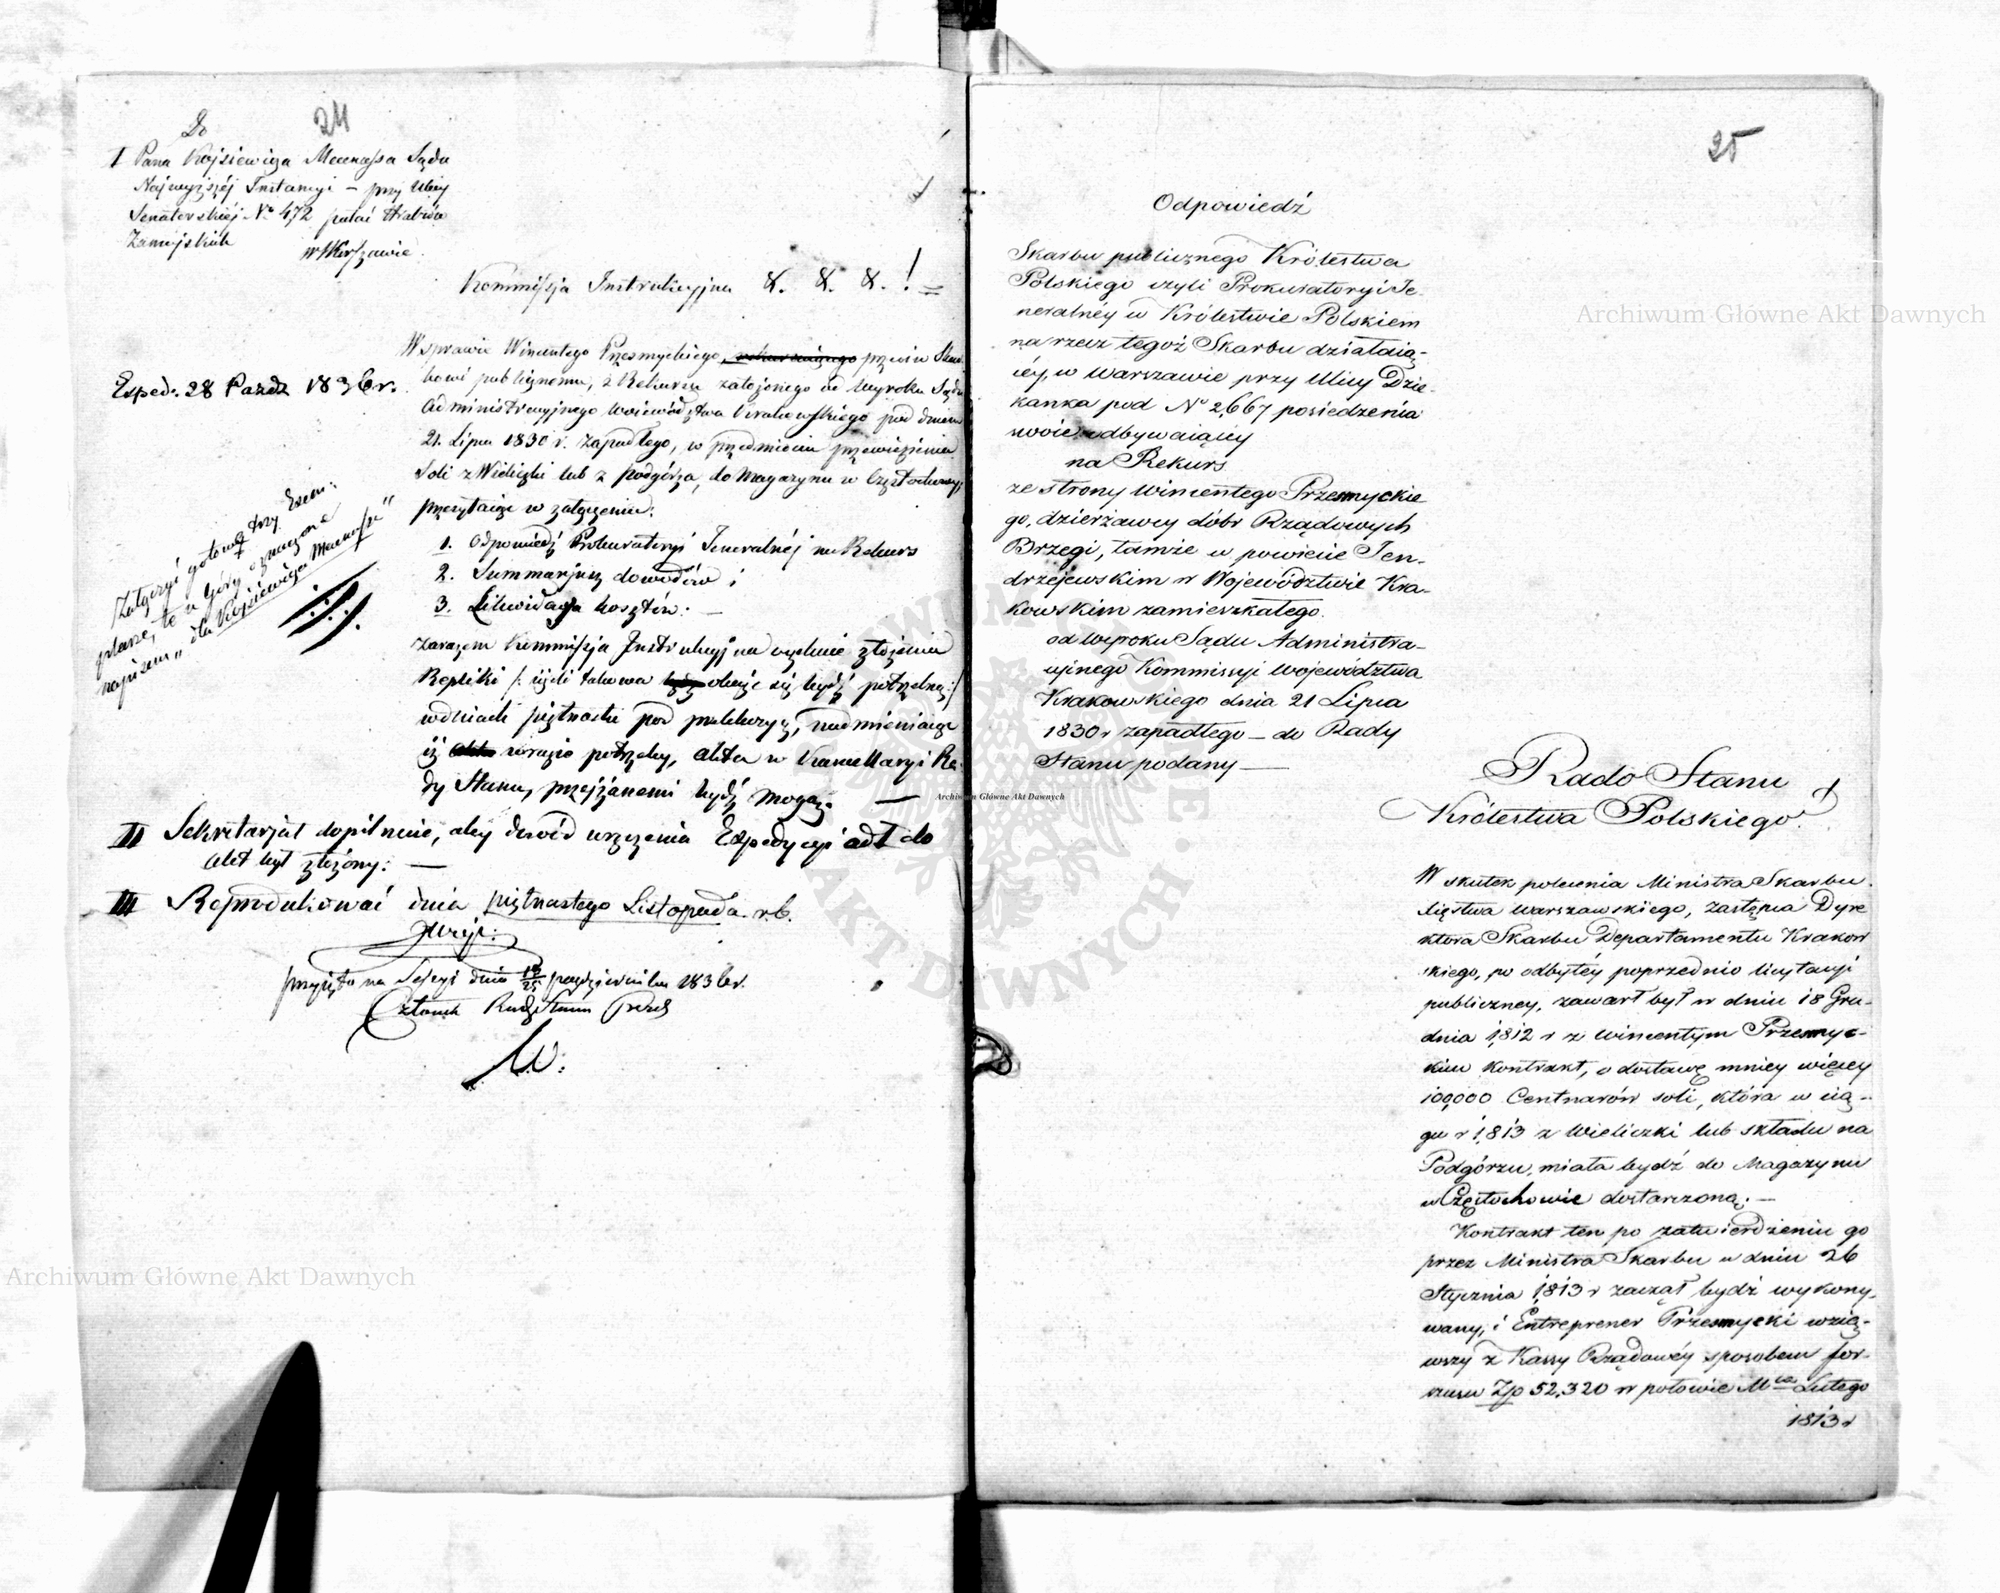 24
Do
I Pana Kojsiewicza Mecenassa Sądu
Najwyższéj Instancyi – przy Ulicy
Senatorskiéj No 472 pałac Hrabiów
Zamojskich
w Warszawie.
Kommissja Instrukcyjna &. &. &. !
W sprawie Wincentego Przesmyckiego, przeciw Skar-
bowi publicznemu, z Rekursu założonego od Wyroku Sądu
Administracyjnego Województwa Krakowskiego pod dniem
21. Lipca 1830 r. zapadłego, w przedmiocie przewiezienia
Soli z Wieliczki lub z Podgórza, do Magazynu w Częstochowy,
przesyłając w załączeniu:
1. Odpowiedź Prokuratoryi Jeneralnéj na Rekurs
2. Summarjusz dowodów i
3. Likwidacją kosztów: —
zarazem Kommissja Instrukcyjna wzywa złożenia
Repliki /: jeżeli takowa okaże się bydź potrzebną :/
w dniach piętnastu pod prekluzyą, nadmieniając
iż w razie potrzeby, akta w Kancellaryi Ra-
dy Stanu, przejżanemi bydź mogą. —
Exped: 28 Paźdz 1836 r.
Załączyć gotowe trzy Exem:
plarze, te u góry oznaczone
napisem „ dla Kojsiewicza Mecenassa "
II Sekretarjat dopilnuie, aby dowód wręczenia Expedycyi ad I do
akt był złożony: —
III Reprodukować dnia piętnastego Listopada r. b.
przyjęto na Sessyi dnia 13/25 października 1836 r.
Członek Rady Stanu Prezd
25
Odpowiedź
Skarbu publicznego Królestwa
Polskiego czyli Prokuratoryi Je-
neralnéy w Królestwie Polskiem
na rzecz tegoż Skarbu działaią-
céy, w Warszawie przy Ulicy Dzie-
kanka pod No 2,667 posiedzenia
swoie odbywaiącey
na Rekurs
ze strony Wincentego Przesmyckie
go, dzierżawcy dóbr Rządowych
Brzegi, tamże w powiecie Jen-
drzejewskim w Województwie Kra-
kowskim zamieszkałego.
od Wyroku Sądu Administra-
cyjnego Kommissyi Województwa
Krakowskiego dnia 21 Lipca
1830 r zapadłego — do Rady
Stanu podany —
Rado Stanu
Królestwa Polskiego!
W skutek polecenia Ministra Skarbu
Xięstwa Warszawskiego, zastępca Dyre
ktora Skarbu Departamentu Krakow
skiego, po odbytéy poprzednio licytacyi
publiczney, zawarł był w dniu 18 Gru-
dnia 1812 r z Wincentym Przesmyc-
kim kontrakt, o dostawę mniey więcey
100,000 Centnarów soli, która w cią-
gu r 1813 z Wieliczki lub składu na
Podgórzu, miała bydź do Magazynu
w Częstochowie dostarczoną. —
Kontrakt ten po zatwierdzeniu go
przez Ministra Skarbu w dniu 26
Stycznia 1813 r zaczął bydź wykony-
wany, i Entreprener Przesmycki wzią-
wszy z Kassy Rządowéy sposobem for-
szusu Zło 52,320 w połowie Mca Lutego
1813 r
Archiwum Główne Akt Dawnych
Archiwum Główne Akt Dawnych
Archiwum Główne Akt Dawnych
AKT DAWNYCH